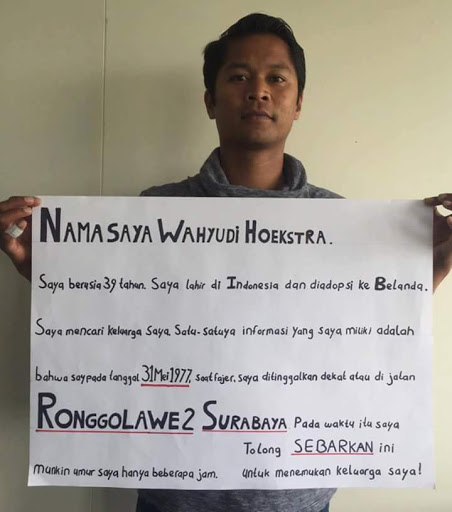 NAMA SAYA WAHYUDI HOEKSTRA.
Saya berusia 39 tahun. Saya lahir di Indonesia dan diadopsi ke Belanda.
Saya mencari keluarga saya. Satu-satuya informasi yang saya miliki adalah
bahwa say pada tanggal 31 Mei 1977, saat fajer, saya ditinggalkan dekat atau di jalan
RONGGOLAWE 2 SURABAYA Pada waktu itu saya
Tolong SEBARKAN ini
munkin umur saya hanya beberapa jam. untuk menemukan keluarga saya!